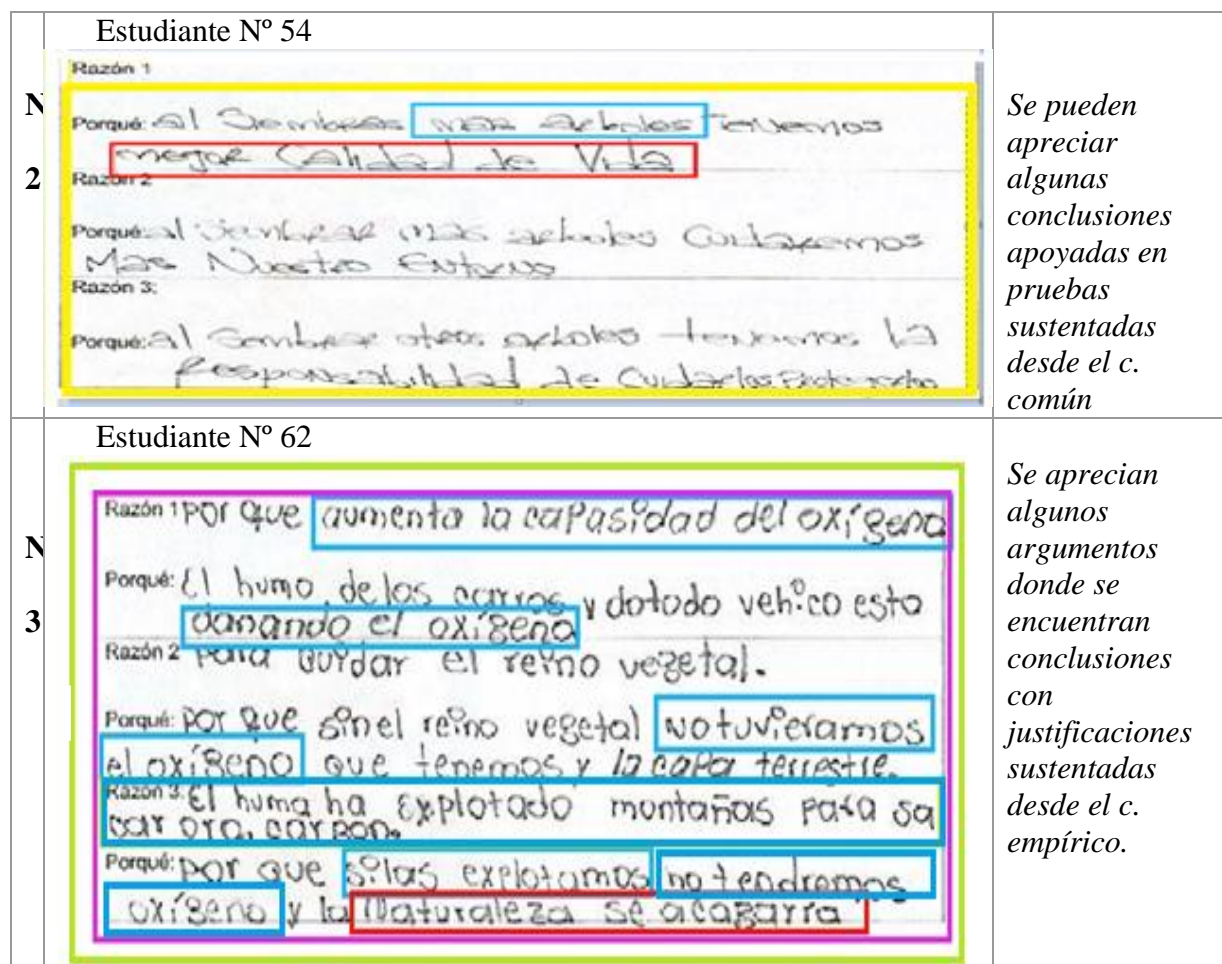 Estudiante Nº 54
N
2
Razón 1
Porqué: al Sembrar mas arboles tenemos
mejor Calidad de Vida
Razón 2
Porqué: al Sembrar mas arboles Cuidaremos
Mas Nuestro Entorno
Razón 3:
Porqué: al Sembrar otros arboles tenemos la
Responsabilidad de Cuidarlos
Se pueden
apreciar
algunas
conclusiones
apoyadas en
pruebas
sustentadas
desde el c.
común
Estudiante Nº 62
N
3
Razón 1 por que aumenta la capasidad del oxígeno
Porqué: El humo de los carros y dotodo vehico esta
danando el oxígeno
Razón 2 para quydar el reino vegetal.
Porqué: por que sin el reino vegetal no tuvieramos
el oxígeno que tenemos y la capa terrestre.
Razón 3: El huma ha explotado montañas para sa
car oro, carbon.
Porqué: por que si las explotamos no tendremos
oxígeno y la Naturaleza se acabarra
Se aprecian
algunos
argumentos
donde se
encuentran
conclusiones
con
justificaciones
sustentadas
desde el c.
empírico.